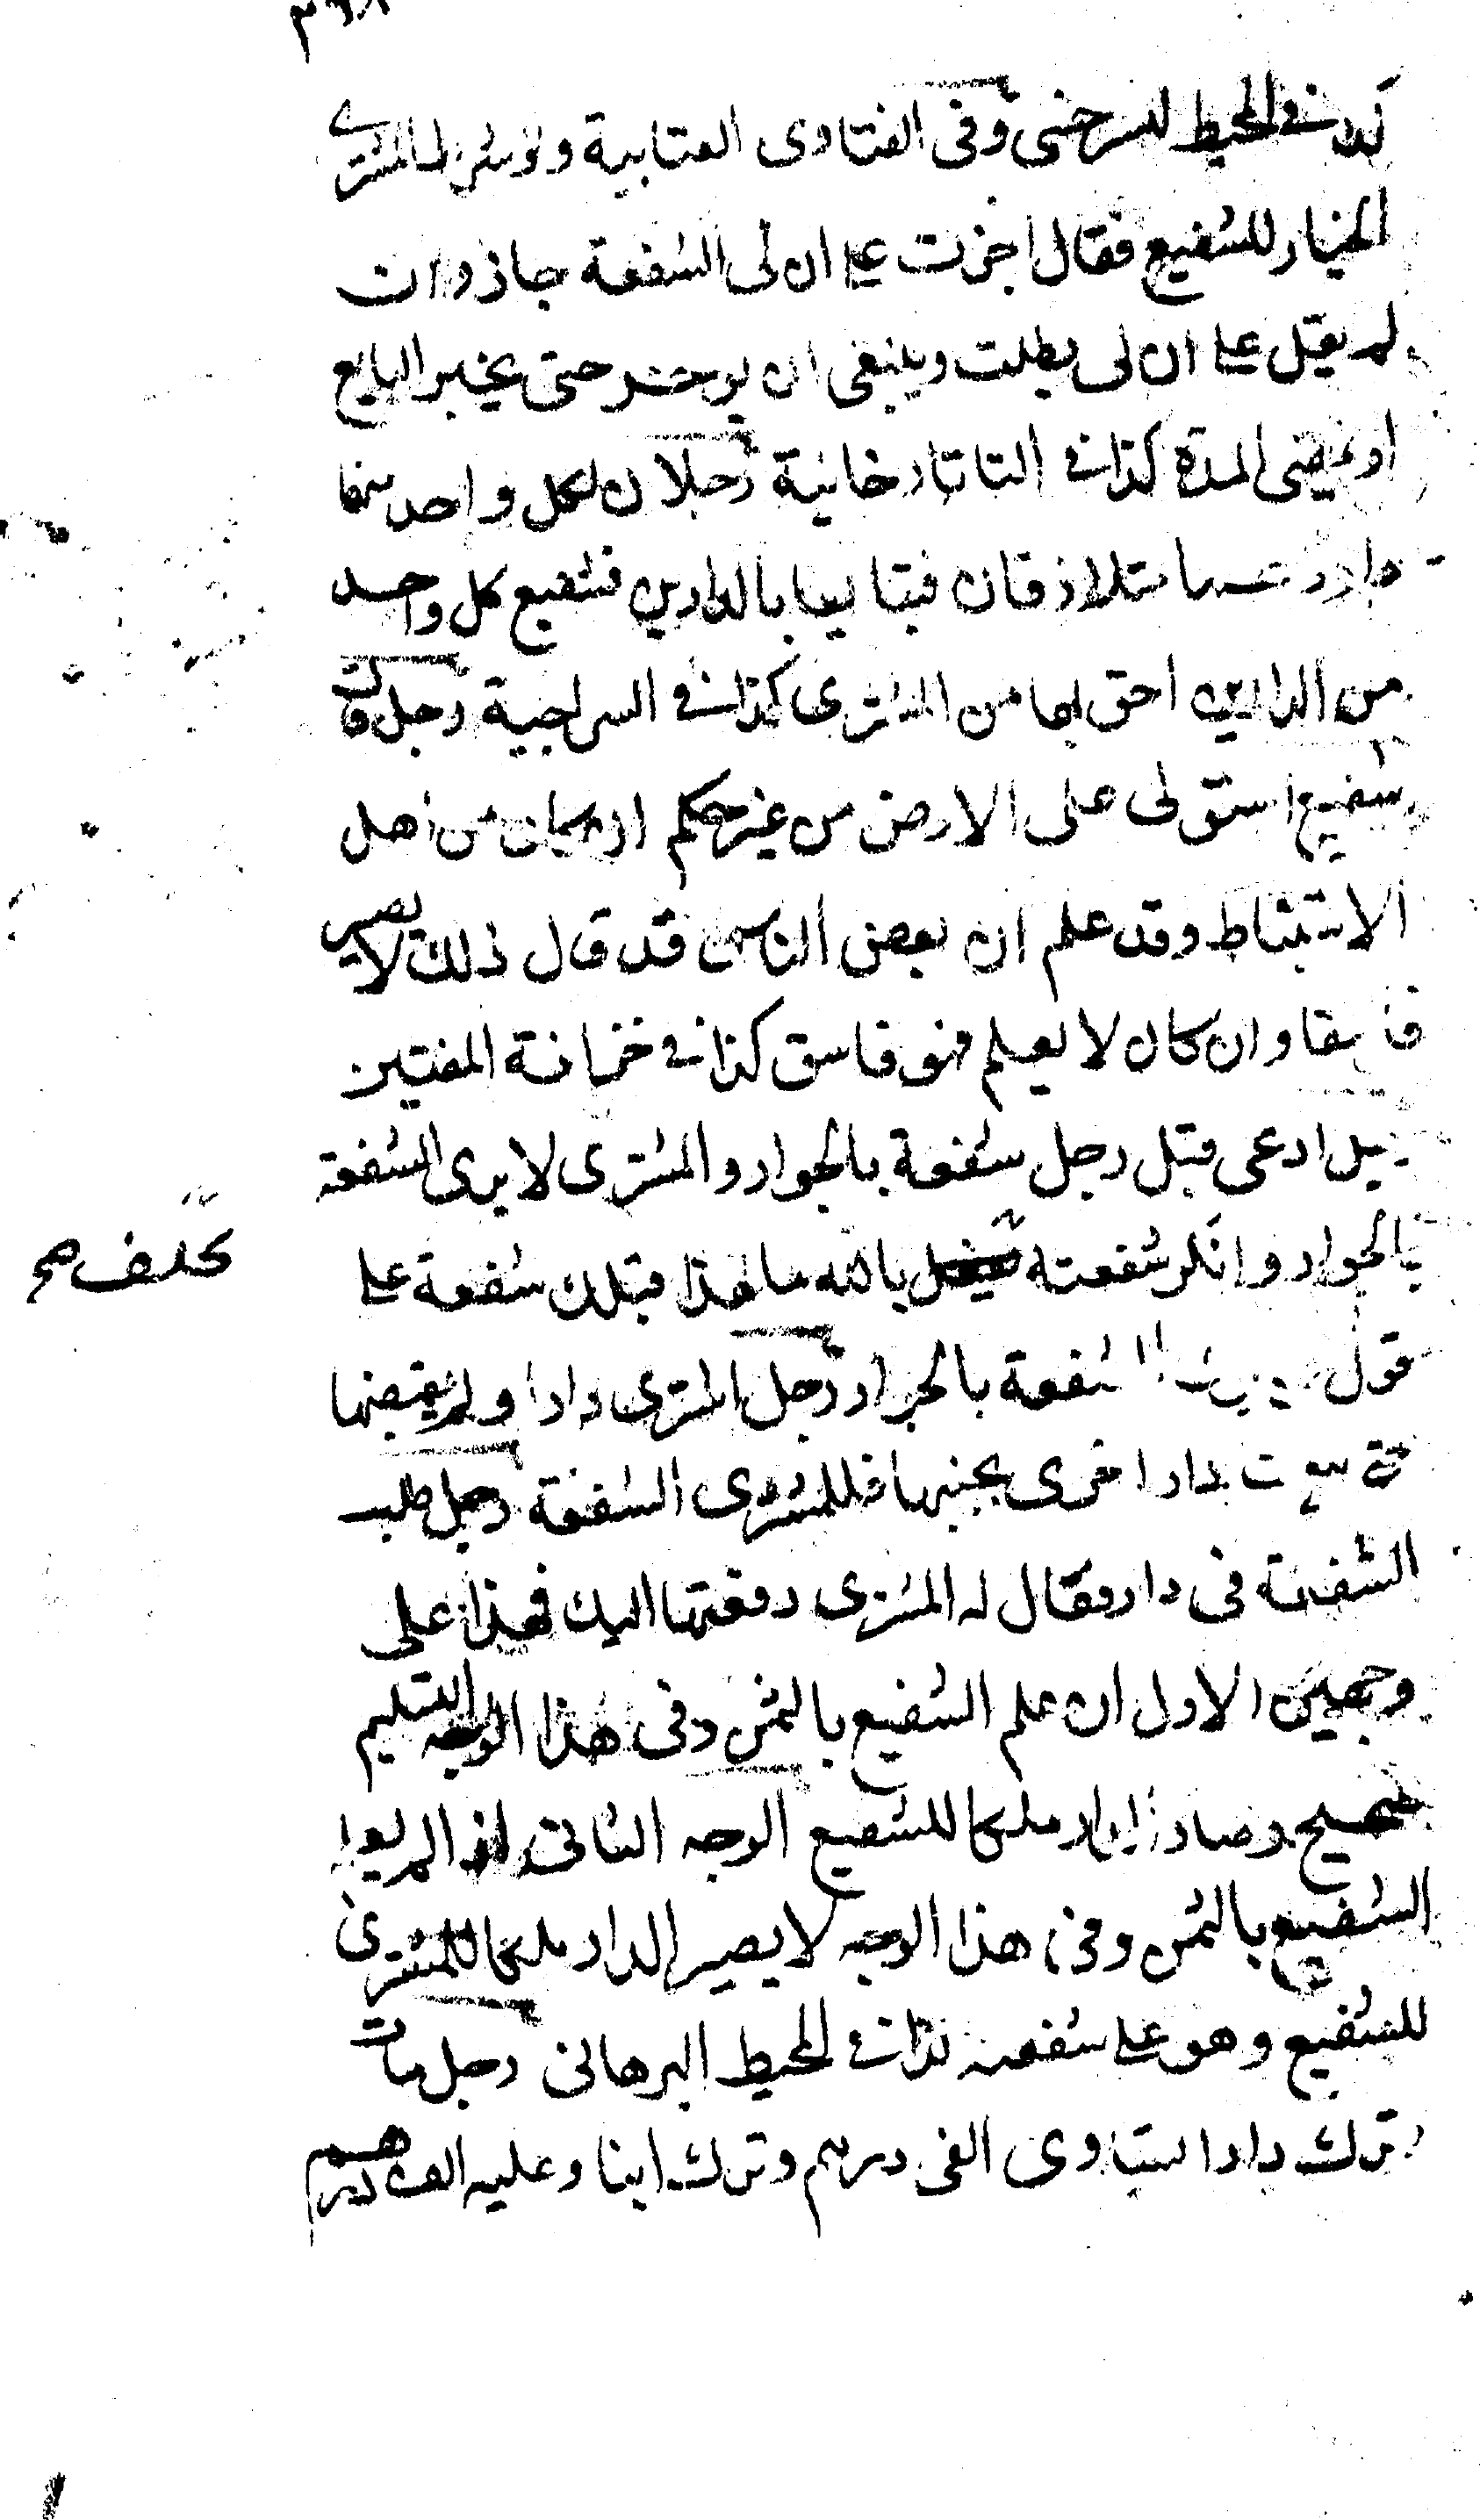 كذا في المحيط للسرخسى وفى الفتاوى العتابية ولو شرط المشترى
الخيار للشفيع فقال اجزت على ان لى الشفعة جاز وان
لم يقل على ان لى بطلت وينبغى ان يوخر حتى يجيز البايع
او يمضى المدة كذا في التاتارخانية رجلان لكل واحد منهما
دار متلازقان فتبايعا بالدارين فشفيع كل واحد
من الدارين احق بها من المشترى كذا في السراجية رجل
شفيع استولى على الارض من غير حكم ان كان من اهل
الاستنباط وقد علم ان بعض الناس قد قال ذلك لا يصير
فاسقا وان كان لا يعلم فهو فاسق كذا في خزانة المفتين
رجل ادعى قبل رجل شفعة بالجوار والمشترى لا يرى الشفعة
بالجوار وانكر شفعته بالله ما لهذا قبلك شفعة على
يحلف صح
قول الشفعة بالجوار رجل اشترى دارا ولم يقبضها
حتى بيعت دار اخرى بجنبها فللمشترى الشفعة رجل طلب
الشفعة فى دار فقال له المشترى دفعتها اليك فهذا على
وجهين الاول ان علم الشفيع بالثمن وفى هذا الوجه التسليم
صحيح وصار الدار ملكا للشفيع الوجه الثانى اذا لم يعلم
الشفيع بالثمن وفى هذا الوجه لا يصير الدار ملكا للمشترى
للشفيع وهو على شفعته كذا في المحيط البرهانى رجل مات
وترك دارا تساوى الفى درهم وترك ابنا وعليه الف درهم